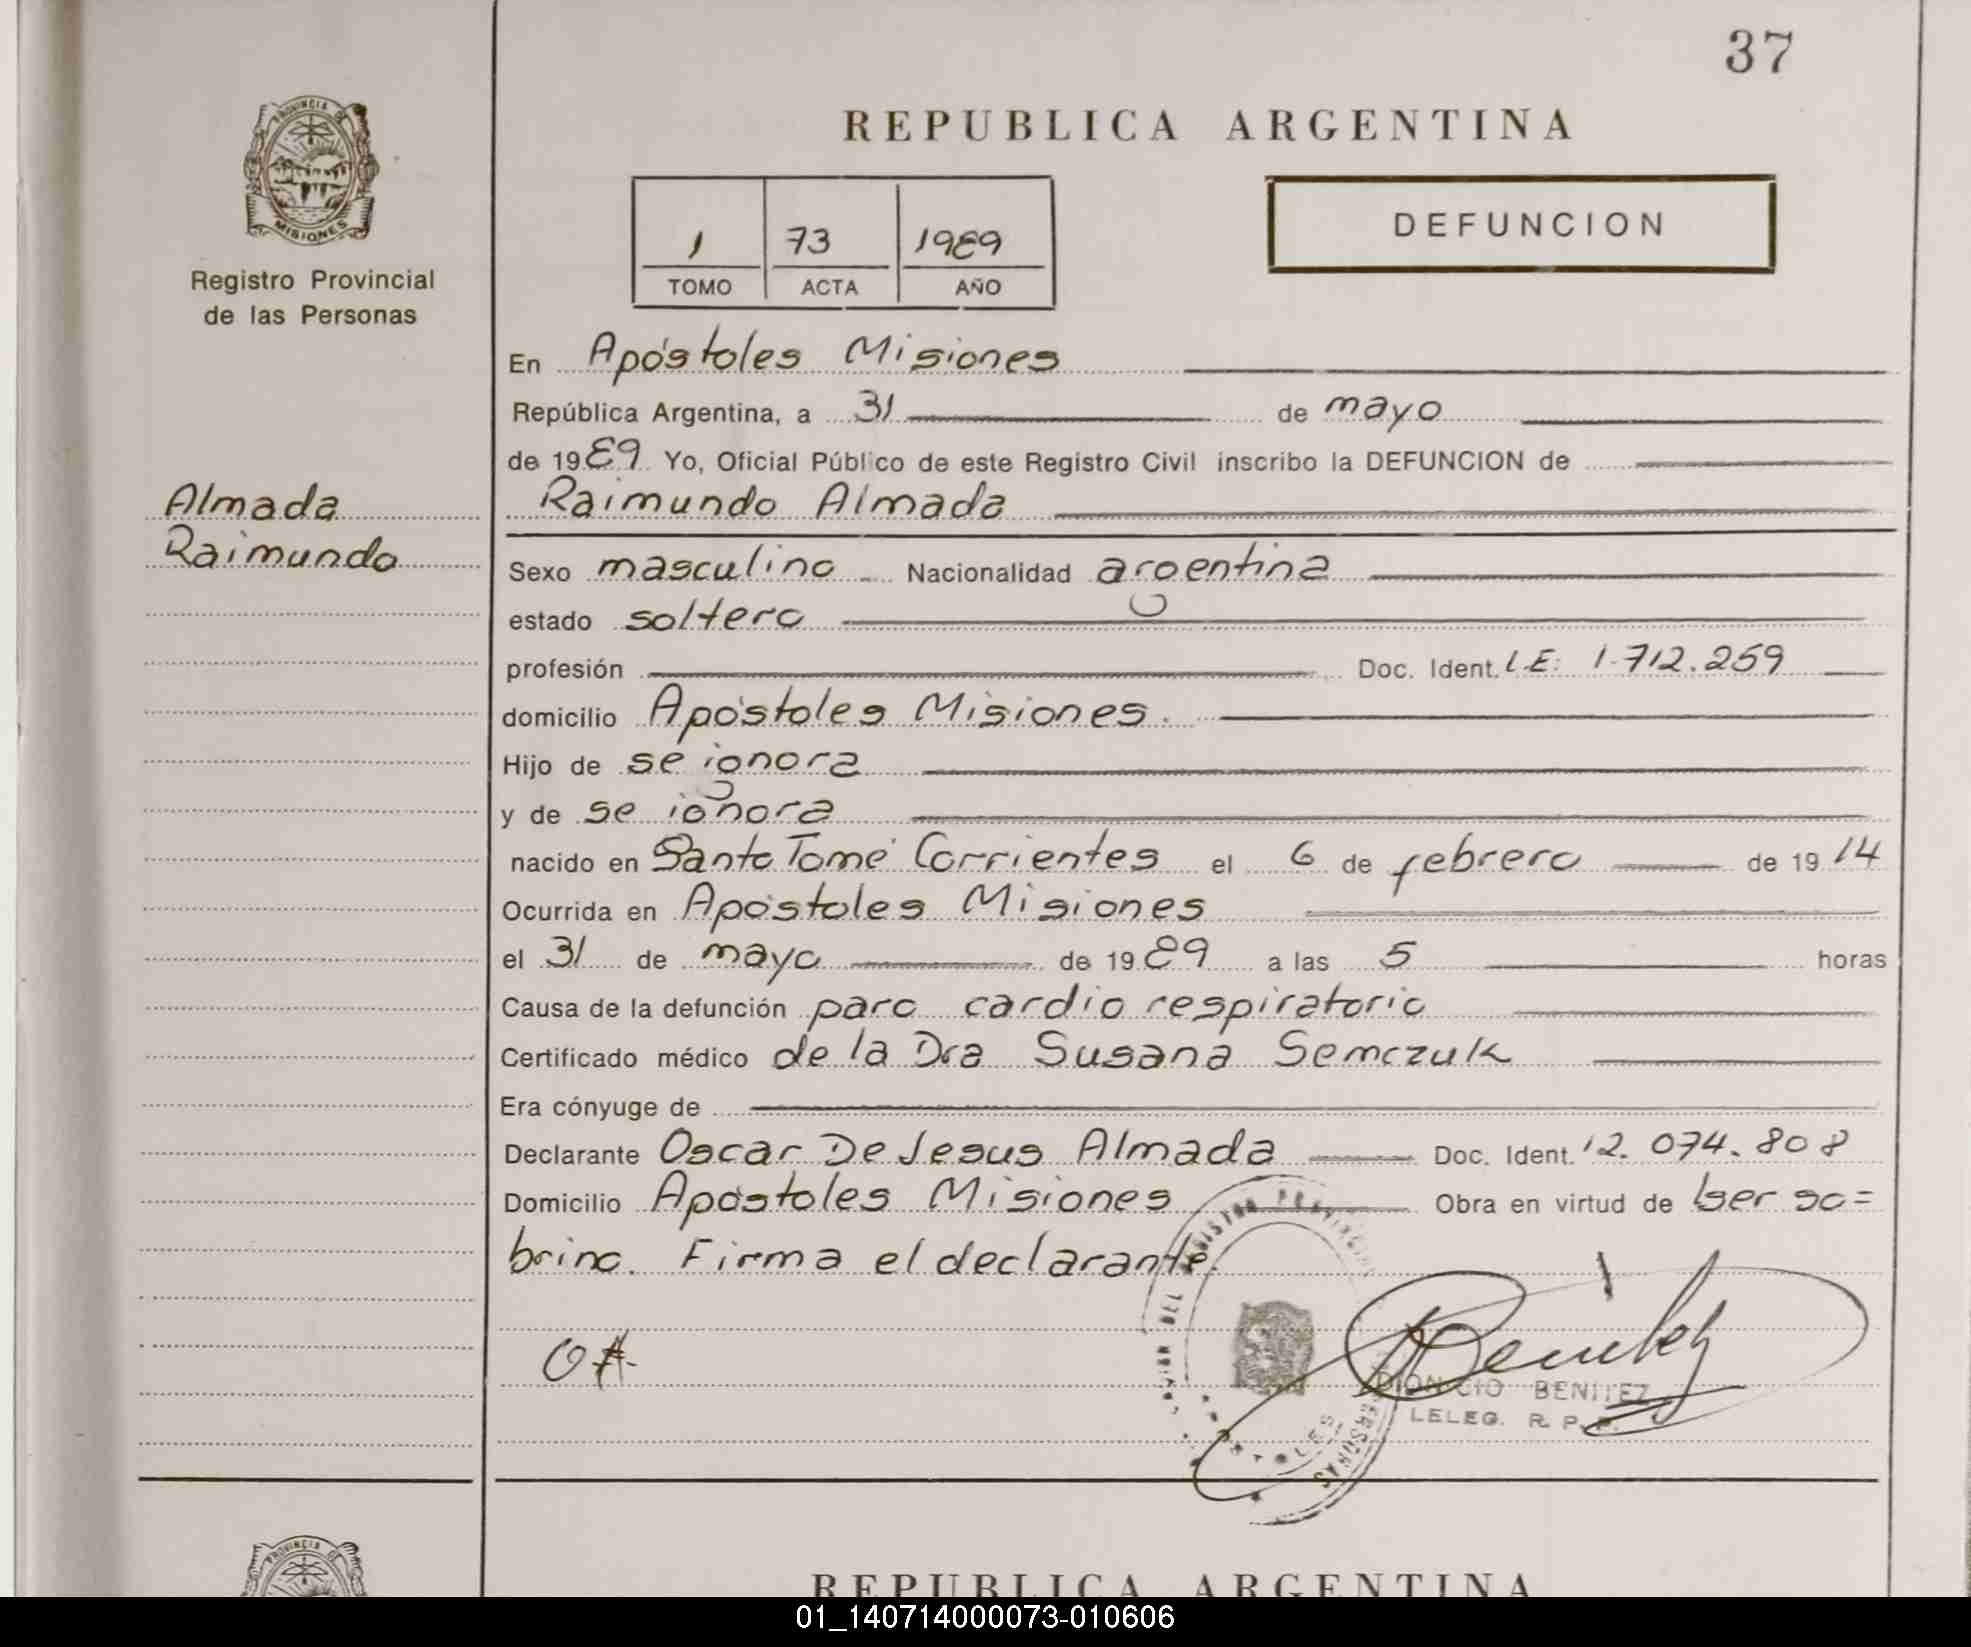 37
PROVINCIA DE
MISIONES
Registro Provincial
de las Personas
REPUBLICA ARGENTINA
1 73 1989
TOMO ACTA AÑO
DEFUNCION
En Apóstoles Misiones
República Argentina, a 31 de mayo
de 1989 Yo, Oficial Público de este Registro Civil inscribo la DEFUNCION de
Almada
Raimundo
Raimundo Almada
Sexo masculino Nacionalidad argentina
estado soltero
profesión Doc. Ident. L.E: 1.712.259
domicilio Apóstoles Misiones.
Hijo de se ignora
y de se ignora
nacido en Santo Tomé Corrientes el 6 de febrero de 1914
Ocurrida en Apóstoles Misiones
el 31 de mayo de 1989 a las 5 horas
Causa de la defunción paro cardio respiratorio
Certificado médico de la Dra Susana Semczuk
Era cónyuge de
Declarante Oscar De Jesus Almada Doc. Ident. 12.074.808
Domicilio Apóstoles Misiones Obra en virtud de ser so=
brino. Firma el declarante.
OA
Benitez
DIONICIO BENITEZ
LELEG. R. P. P.
PROVINCIA
REPUBLICA ARGENTINA
01_140714000073-010606